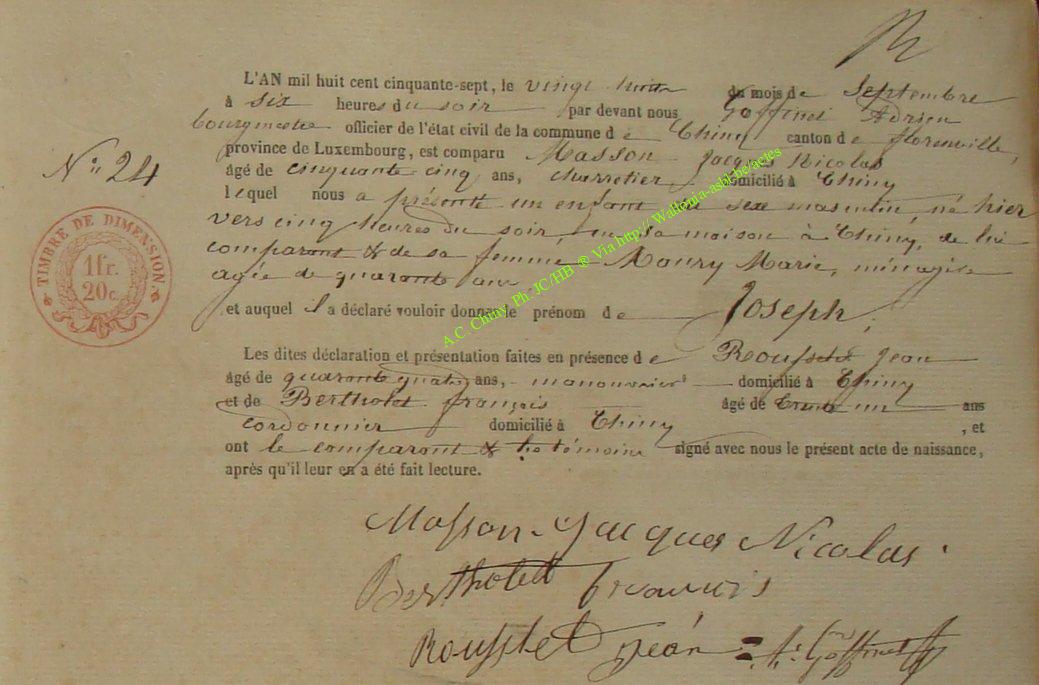 N° 24
TIMBRE DE DIMENSION
1 fr.
20 c.
L'AN mil huit cent cinquante-sept, le vingt huit du mois de Septembre
à six heures du soir par devant nous Goffinet Adrien
bourgmestre officier de l'état civil de la commune de Chiny canton de florenville,
province de Luxembourg, est comparu Masson Jacques Nicolas
âgé de cinquante cinq ans, charretier domicilié à Chiny
lequel nous a présenté un enfant de sexe masculin, né hier
vers cinq heures du soir, en la maison à Chiny, de lui
comparant & de sa femme Maury Marie, ménagère
agée de quarante ans
et auquel il a déclaré vouloir donner le prénom de Joseph,
Les dites déclaration et présentation faites en présence de Rousseau Jean
âgé de quarante quatre ans, manouvrier domicilié à Chiny
et de Bertholet françois âgé de trente un ans
cordonnier domicilié à Chiny, et
ont le comparant & les témoins signé avec nous le présent acte de naissance,
après qu'il leur en a été fait lecture.
Masson Jacques Nicolas.
Bertholet francois
Jean A. Goffinet
A.C. Chiny, Ph. JC/HB ® Via http://Wallonia-asbl.be/actes